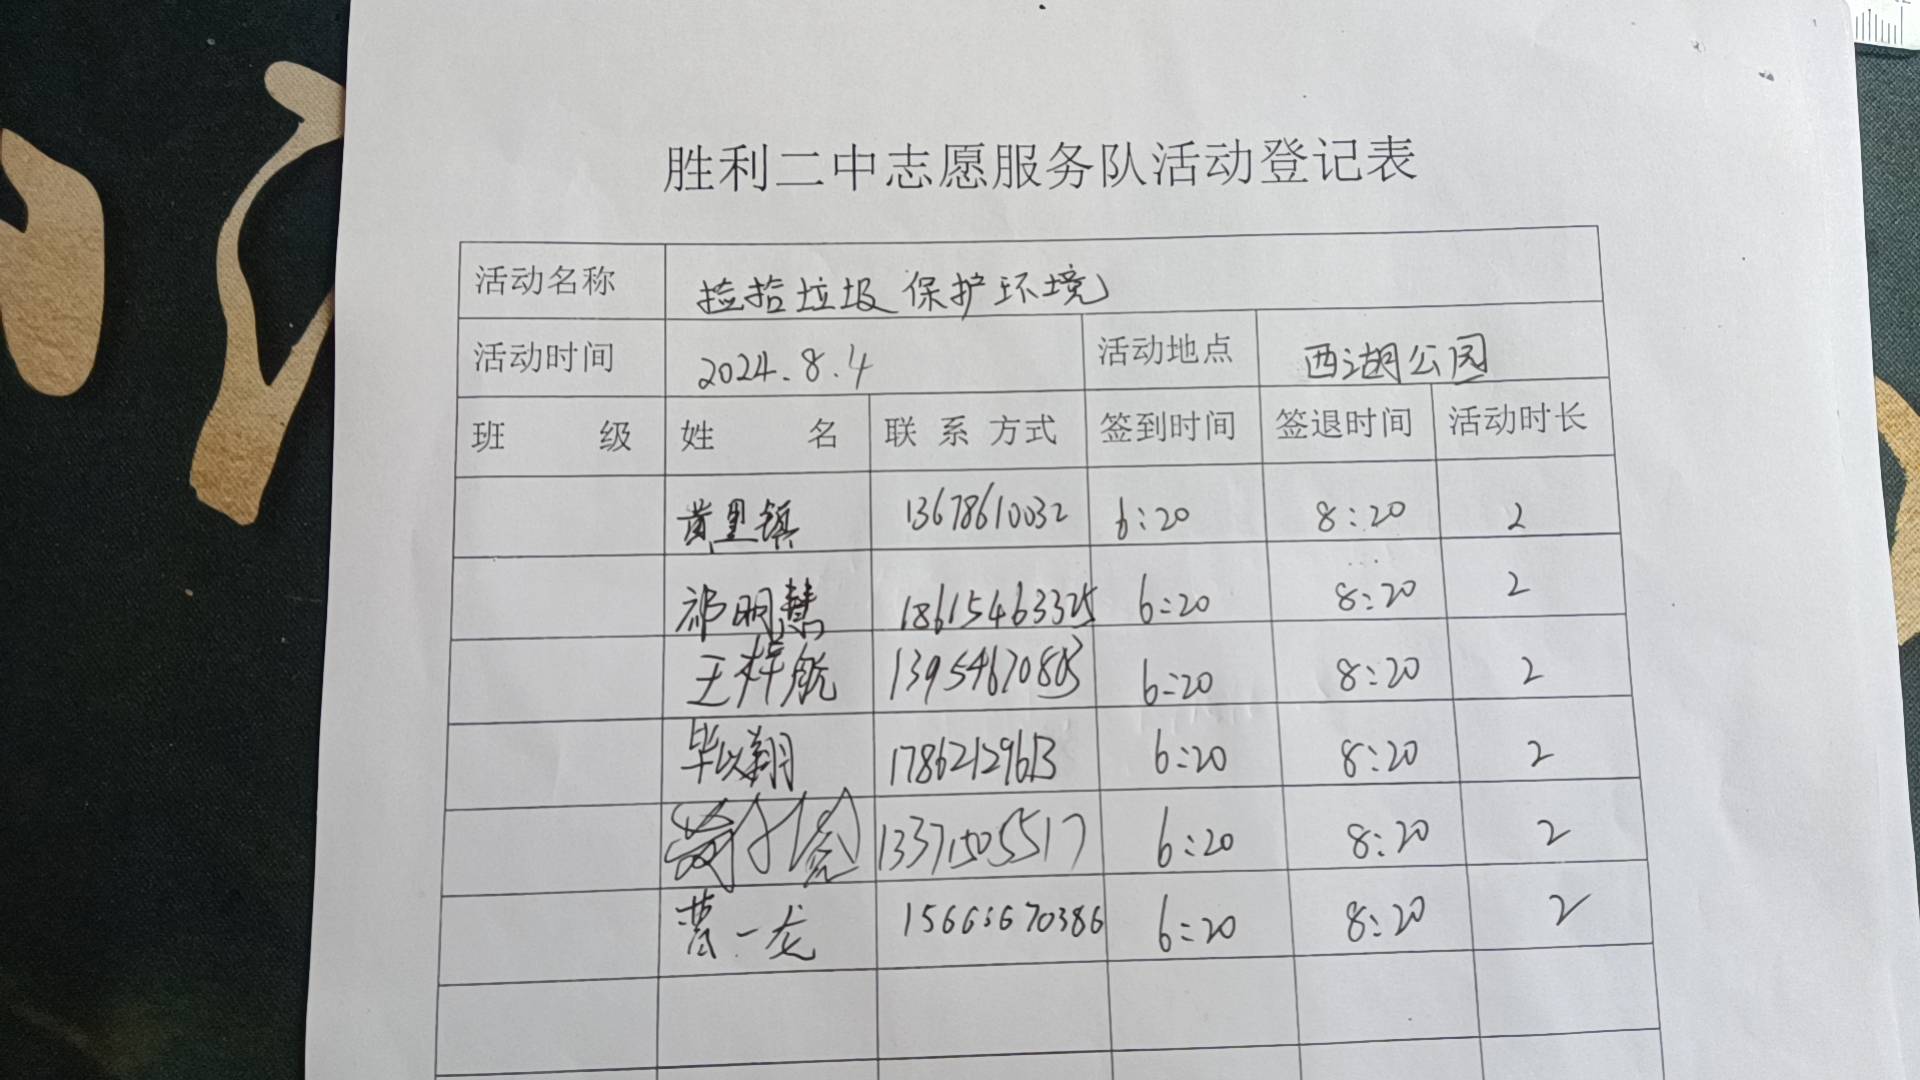 胜利二中志愿服务队活动登记表
活动名称 捡拾垃圾 保护环境
活动时间 2024.8.4 活动地点 西湖公园
班 级 姓 名 联 系 方式 签到时间 签退时间 活动时长
黄里镇 13678610032 6:20 8:20 2
祁明慧 18615463325 6:20 8:20 2
王梓航 13954670803 6:20 8:20 2
毕以翔 17862129613 6:20 8:20 2
13371505517 6:20 8:20 2
曹一龙 15663670386 6:20 8:20 2